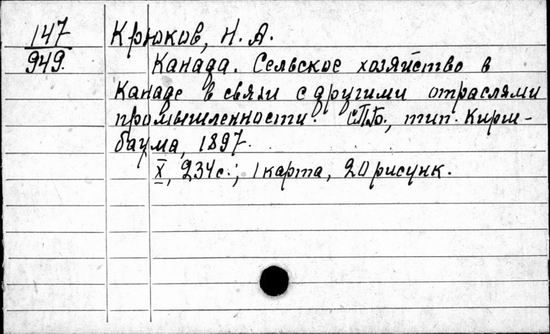 147
949.
Крюков, Н. А.
Канада. Сельское хозяйство в
Канаде в связи с другими отраслями
промышленности. СПБ., тип. Кирш-
баума, 1897.
X, 234 с.; 1 карта, 20 рисунк.